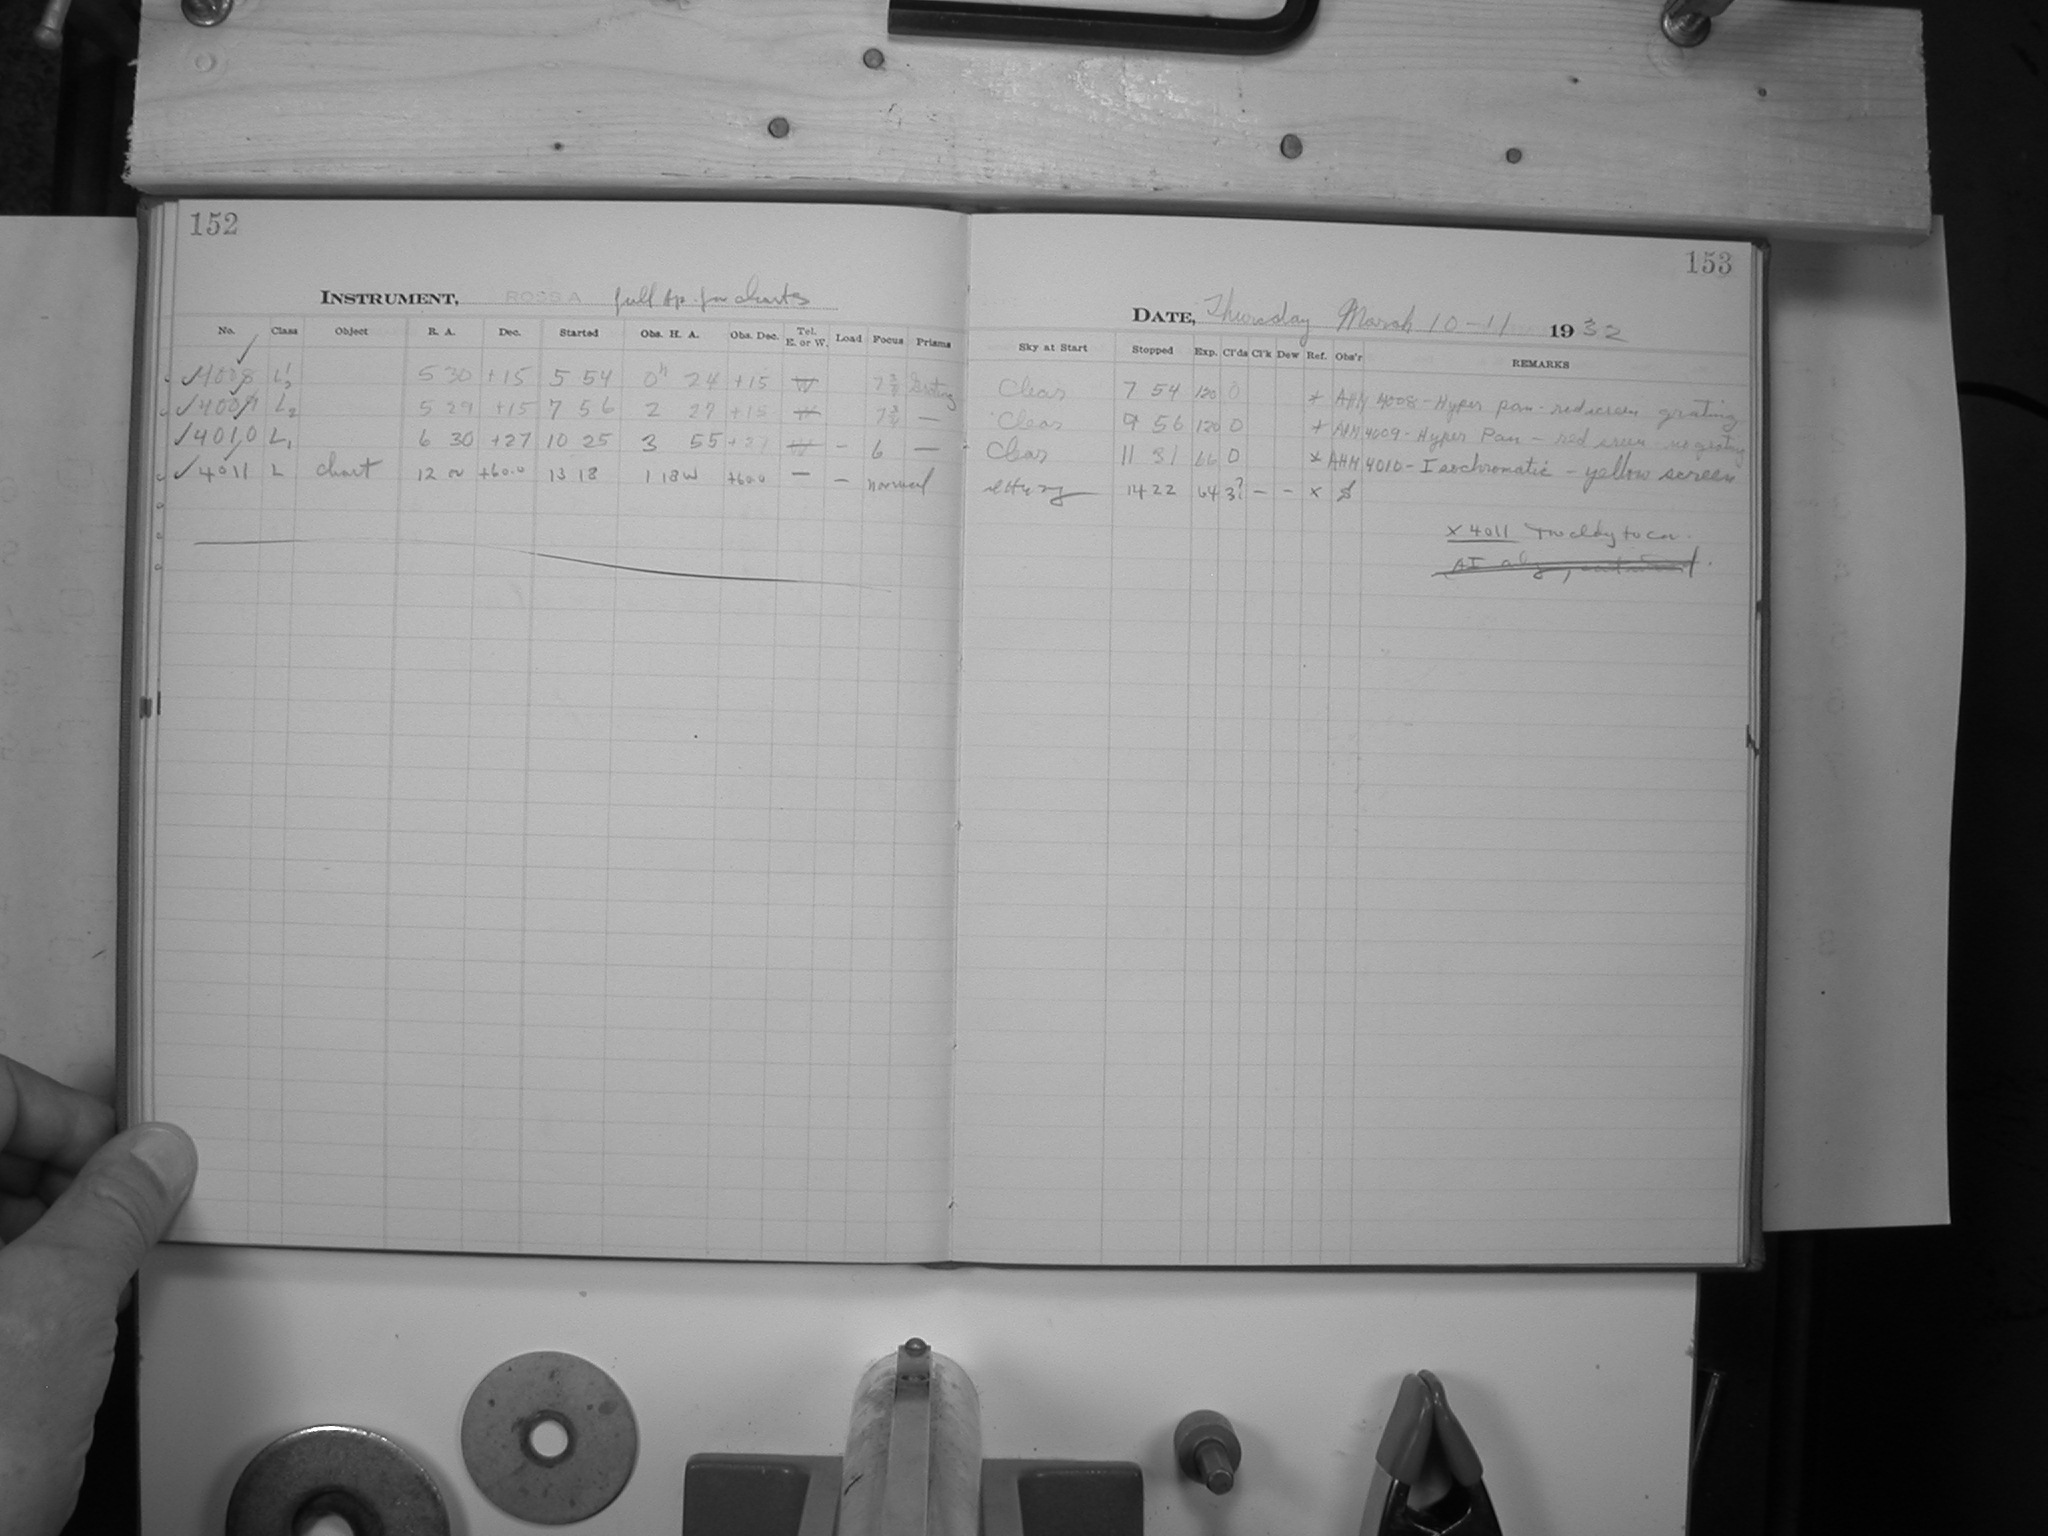 152
153
INSTRUMENT, ROSS A full ap. for charts
DATE, Thursday March 10-11 1932
No. Class Object R. A. Dec. Started Obs. H. A. Obs. Dec. Tel. E. or W. Load Focus Prisms Sky at Start Stopped Exp. Cl'ds Cl'k Dew Ref. Obs'r REMARKS
✓4008 L 5 30 +15 5 54 0h 24 +15 W 7 3/4 Grating Clear 7 54 120 0 * AHM 4008 - Hyper pan - red screen grating
✓4009 L2 5 29 +15 7 56 2 27 +15 W 7 3/4 — Clear 9 56 120 0 * AHM 4009 - Hyper Pan - red screen no grating
✓4010 L1 6 30 +27 10 25 3 55 +27 W - 6 — Clear 11 31 66 0 * AHM 4010 - Isochromatic - yellow screen
✓4011 L chart 12 00 +60.0 13 18 1 18W +60.0 — - normal 14 22 64 3? - - x
x 4011 Too cldy to con.